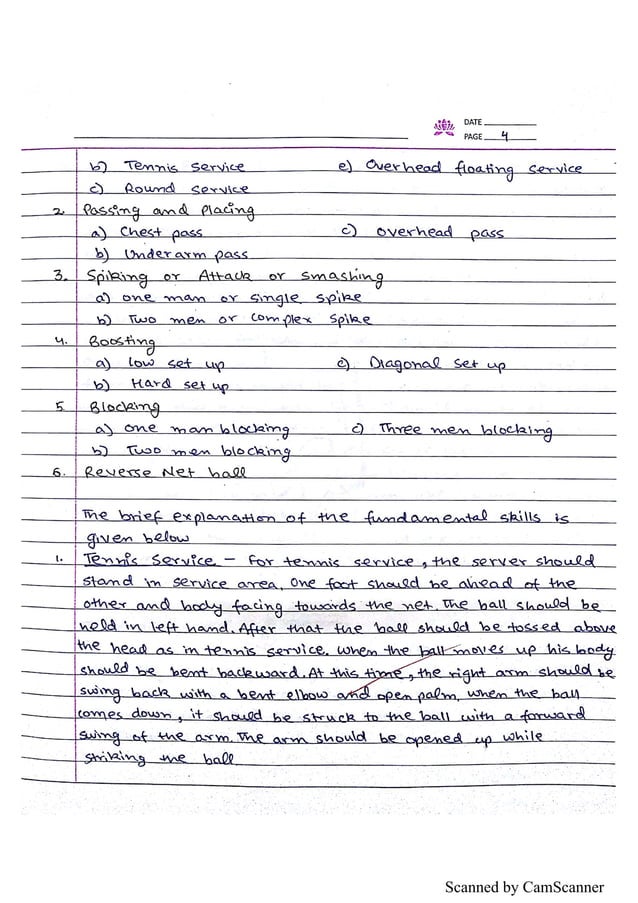 DATE
PAGE 4
b) Tennis service e) Overhead floating service
c) Round service
2. Passing and Placing
a) Chest pass c) overhead pass
b) Underarm pass
3. Spiking or Attack or smashing
a) one man or single spike
b) Two men or complex spike
4. Boosting
a) low set up c) Diagonal set up
b) Hard set up
5 Blocking
a) one man blocking c) Three men blocking
b) Two men blocking
6. Reverse Net ball
The brief explanation of the fundamental skills is
given below
1. Tennis Service - For tennis service, the server should
stand in service area. One foot should be ahead of the
other and body facing towards the net. The ball should be
held in left hand. After that the ball should be tossed above
the head as in tennis service. When the ball moves up his body
should be bent backward. At this time, the right arm should be
swing back with a bent elbow and open palm. When the ball
comes down, it should be struck to the ball with a forward
swing of the arm. The arm should be opened up while
striking the ball
Scanned by CamScanner